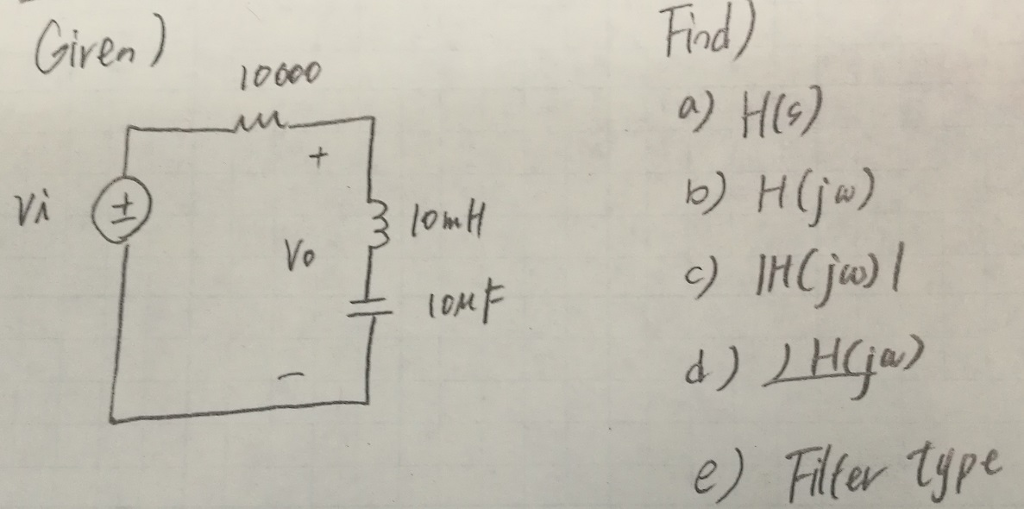 Given)
10000
Vi
+
Vo
10mH
10μF
−
Find)
a) H(s)
b) H(jω)
c) |H(jω)|
d) ∠H(jω)
e) Filter type